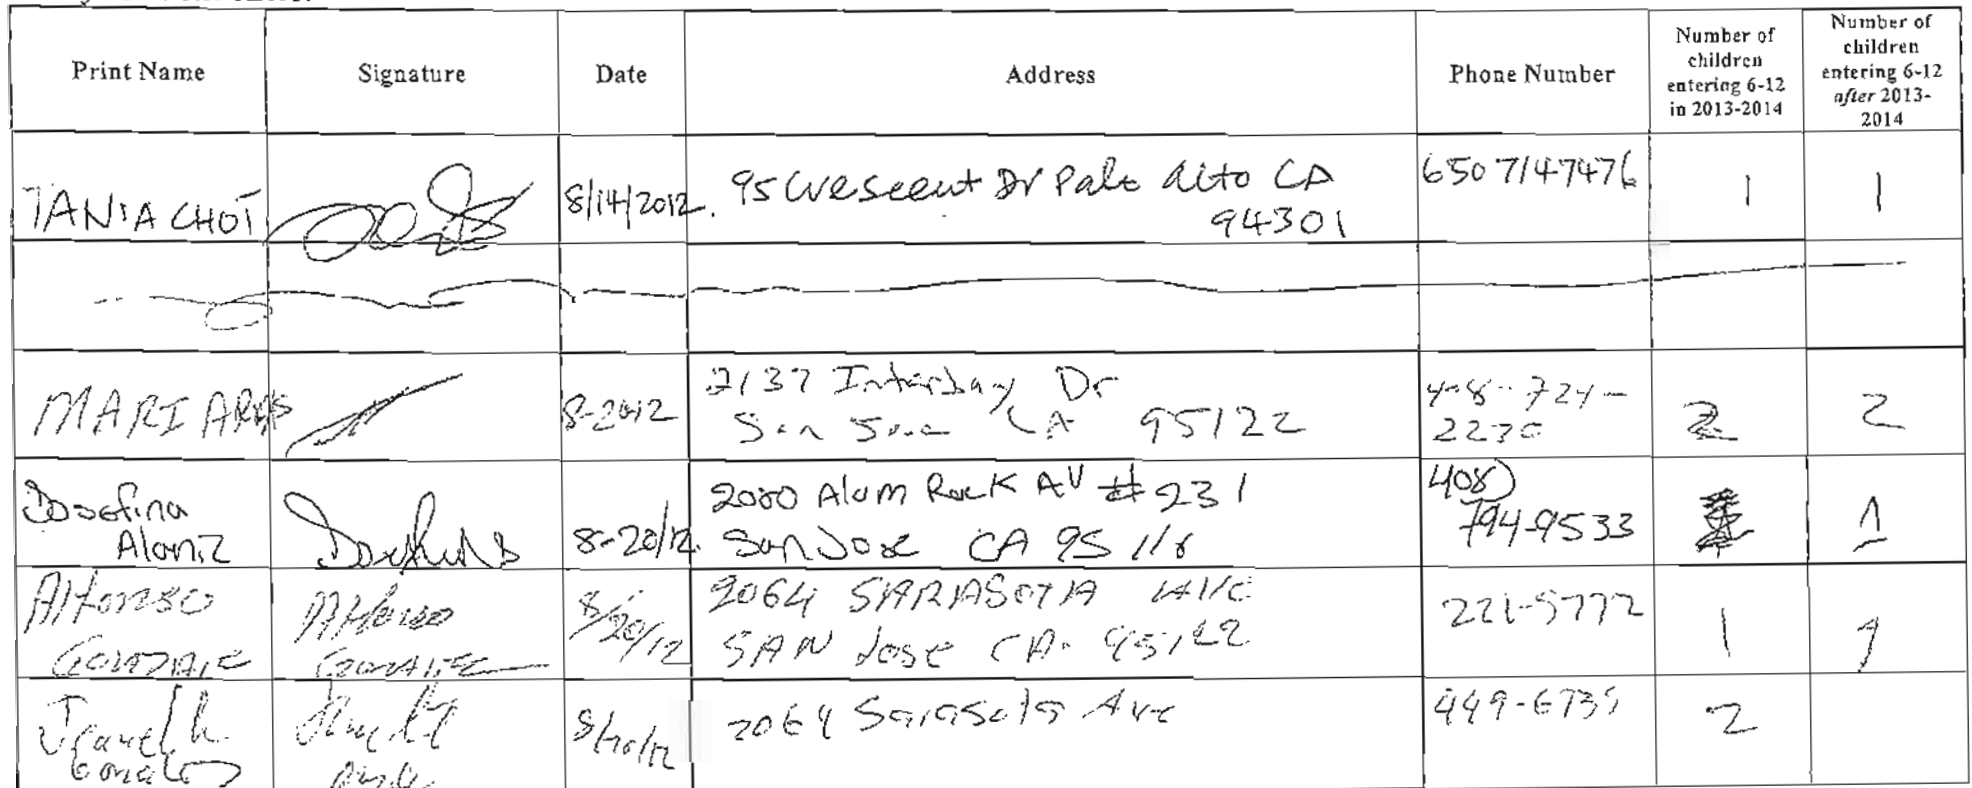 Print Name
Signature
Date
Address
Phone Number
Number of
children
entering 6-12
in 2013-2014
Number of
children
entering 6-12
after 2013-
2014
TANIA CHOI
8/14/2012.
95 Crescent Dr Palo Alto CA
94301
650 7147476
1
1
MARI
8-2012
2137 Interbay Dr
San Jose CA 95122
724-
2230
2
2
Josefina
Alaniz
8-20/12.
2080 Alum Rock AV # 231
San Jose CA 95116
408)
794-9533
1
Alfonso
Alfonso
8/20/12
2064 SARASOTA
SAN Jose CA. 95122
221-5772
1
1
8/20/12
2064 Sarasota Ave
449-6735
2